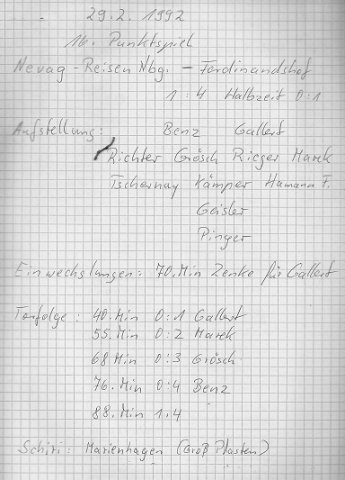 29.2. 1992
16. Punktspiel
Nevag-Reisen Nbg. - Ferdinandshof
1 : 4 Halbzeit 0:1
Aufstellung: Benz Gallert
Richter Grösch Rieger Marek
Tschernay Kämper Hamann F.
Geisler
Pinger
Einwechslungen: 70.Min Zenke für Gallert
Torfolge: 40.Min 0:1 Gallert
55.Min 0:2 Marek
68 Min 0:3 Grösch
76.Min 0:4 Benz
88.Min 1:4
Schiri: Marienhagen (Groß Plasten)